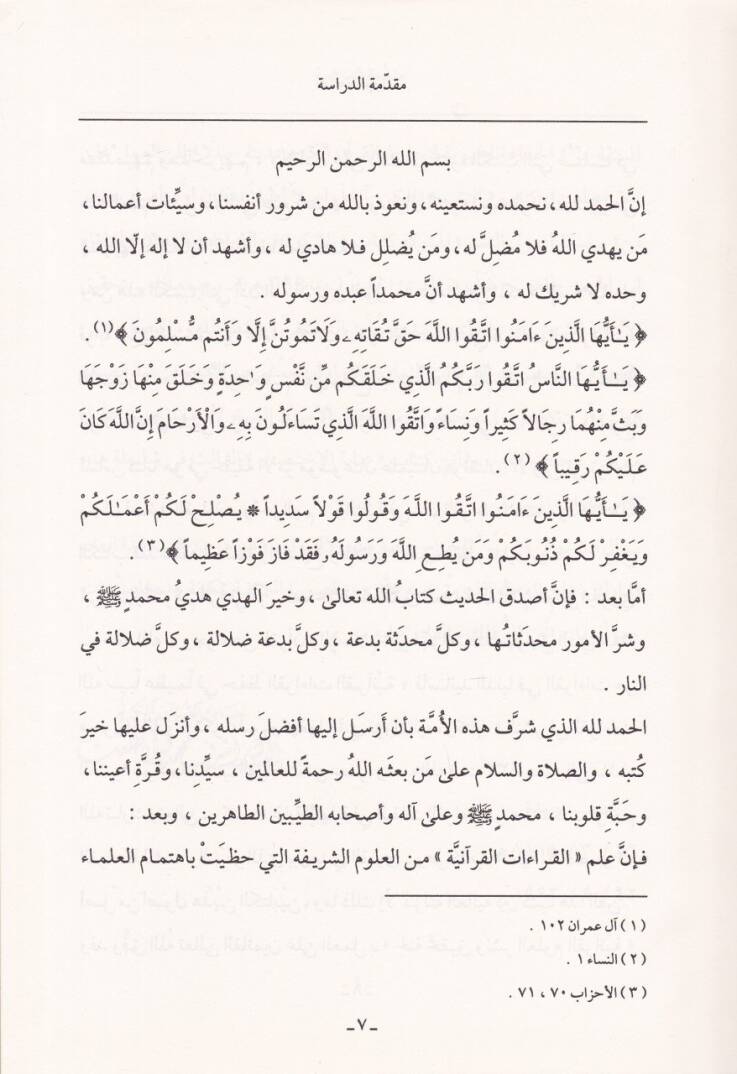 مقدّمة الدراسة
بسم الله الرحمن الرحيم
إنَّ الحمد لله، نحمده ونستعينه، ونعوذ بالله من شرور أنفسنا، وسيِّئات أعمالنا،
مَن يهدي اللهُ فلا مُضِلَّ له، ومَن يُضلِل فلا هادي له ، وأشهد أن لا إله إلّا الله ،
وحده لا شريك له ، وأشهد أنَّ محمداً عبده ورسوله .
﴿ يَـٰأَيُّهَا الَّذِينَ ءَامَنُوا اتَّقُوا اللَّهَ حَقَّ تُقَاتِهِۦ وَلَا تَمُوتُنَّ إِلَّا وَأَنتُم مُّسْلِمُونَ ﴾(١).
﴿ يَـٰأَيُّهَا النَّاسُ اتَّقُوا رَبَّكُمُ الَّذِي خَلَقَكُم مِّن نَّفْسٍ وَاٰحِدَةٍ وَخَلَقَ مِنْهَا زَوْجَهَا
وَبَثَّ مِنْهُمَا رِجَالاً كَثِيراً وَنِسَاءً وَاتَّقُوا اللَّهَ الَّذِي تَسَاءَلُونَ بِهِۦ وَالْأَرْحَامَ إِنَّ اللَّهَ كَانَ
عَلَيْكُمْ رَقِيباً ﴾ (٢).
﴿ يَـٰأَيُّهَا الَّذِينَ ءَامَنُوا اتَّقُوا اللَّهَ وَقُولُوا قَوْلاً سَدِيداً * يُصْلِحْ لَكُمْ أَعْمَـٰلَكُمْ
وَيَغْفِرْ لَكُمْ ذُنُوبَكُمْ وَمَن يُطِعِ اللَّهَ وَرَسُولَهُۥ فَقَدْ فَازَ فَوْزاً عَظِيماً ﴾(٣).
أمّا بعد : فإنَّ أصدق الحديث كتابُ الله تعالى ، وخيرَ الهدي هديُ محمدٍ ﷺ ،
وشرَّ الأمور محدَثاتُها ، وكلَّ محدَثة بدعة ، وكلَّ بدعة ضلالة ، وكلَّ ضلالة في
النار .
الحمد لله الذي شرَّف هذه الأمَّة بأن أرسَل إليها أفضلَ رسله ، وأنزَل عليها خيرَ
كتبه ، والصلاة والسلام على مَن بعثَه اللهُ رحمةً للعالمين ، سيِّدِنا، وقُرَّةِ أعيننا،
وحَبَّةِ قلوبنا ، محمدٍ ﷺ وعلى آله وأصحابه الطيِّبين الطاهرين ، وبعد :
فإنَّ علم « القراءات القرآنيَّة » من العلوم الشريفة التي حظيَتْ باهتمام العلماء
(١) آل عمران ١٠٢ .
(٢) النساء ١ .
(٣) الأحزاب ٧٠ ، ٧١ .
-٧-